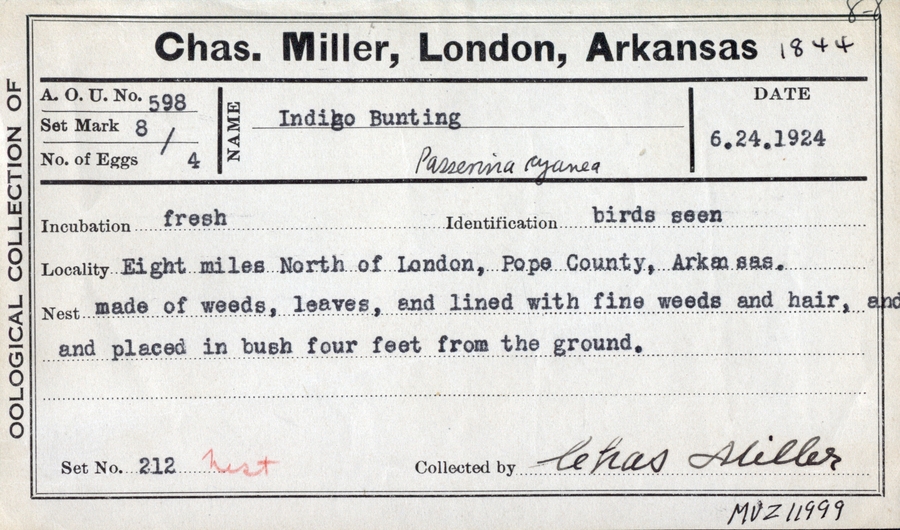 8-8
Chas. Miller, London, Arkansas 1844
OOLOGICAL COLLECTION OF
A. O. U. No. 598
Set Mark 8 /
No. of Eggs 4
NAME
Indigo Bunting
Passerina cyanea
DATE
6.24.1924
Incubation fresh Identification birds seen
Locality Eight miles North of London, Pope County, Arkansas.
Nest made of weeds, leaves, and lined with fine weeds and hair, and
and placed in bush four feet from the ground.
Set No. 212 Nest Collected by Chas Miller
MVZ11999